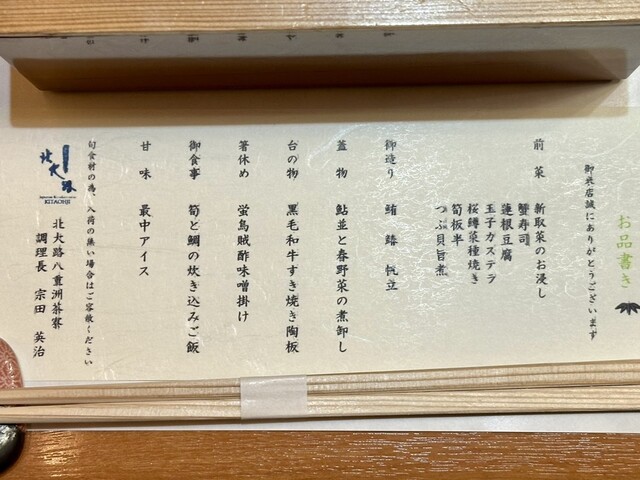 お品書き
御来店誠にありがとうございます
前菜 新取菜のお浸し
蟹寿司
蓮根豆腐
玉子カステラ
桜鱒菜種焼き
筍板半
つぶ貝旨煮
御造り 鮪 鰆 帆立
蓋物 鮎並と春野菜の煮卸し
台の物 黒毛和牛すき焼き陶板
箸休め 蛍烏賊酢味噌掛け
御食事 筍と鯛の炊き込みご飯
甘味 最中アイス
旬食材の為、入荷の無い場合はご容赦ください
北大路
KITAOHJI
北大路八重洲茶寮
調理長 宗田 英治